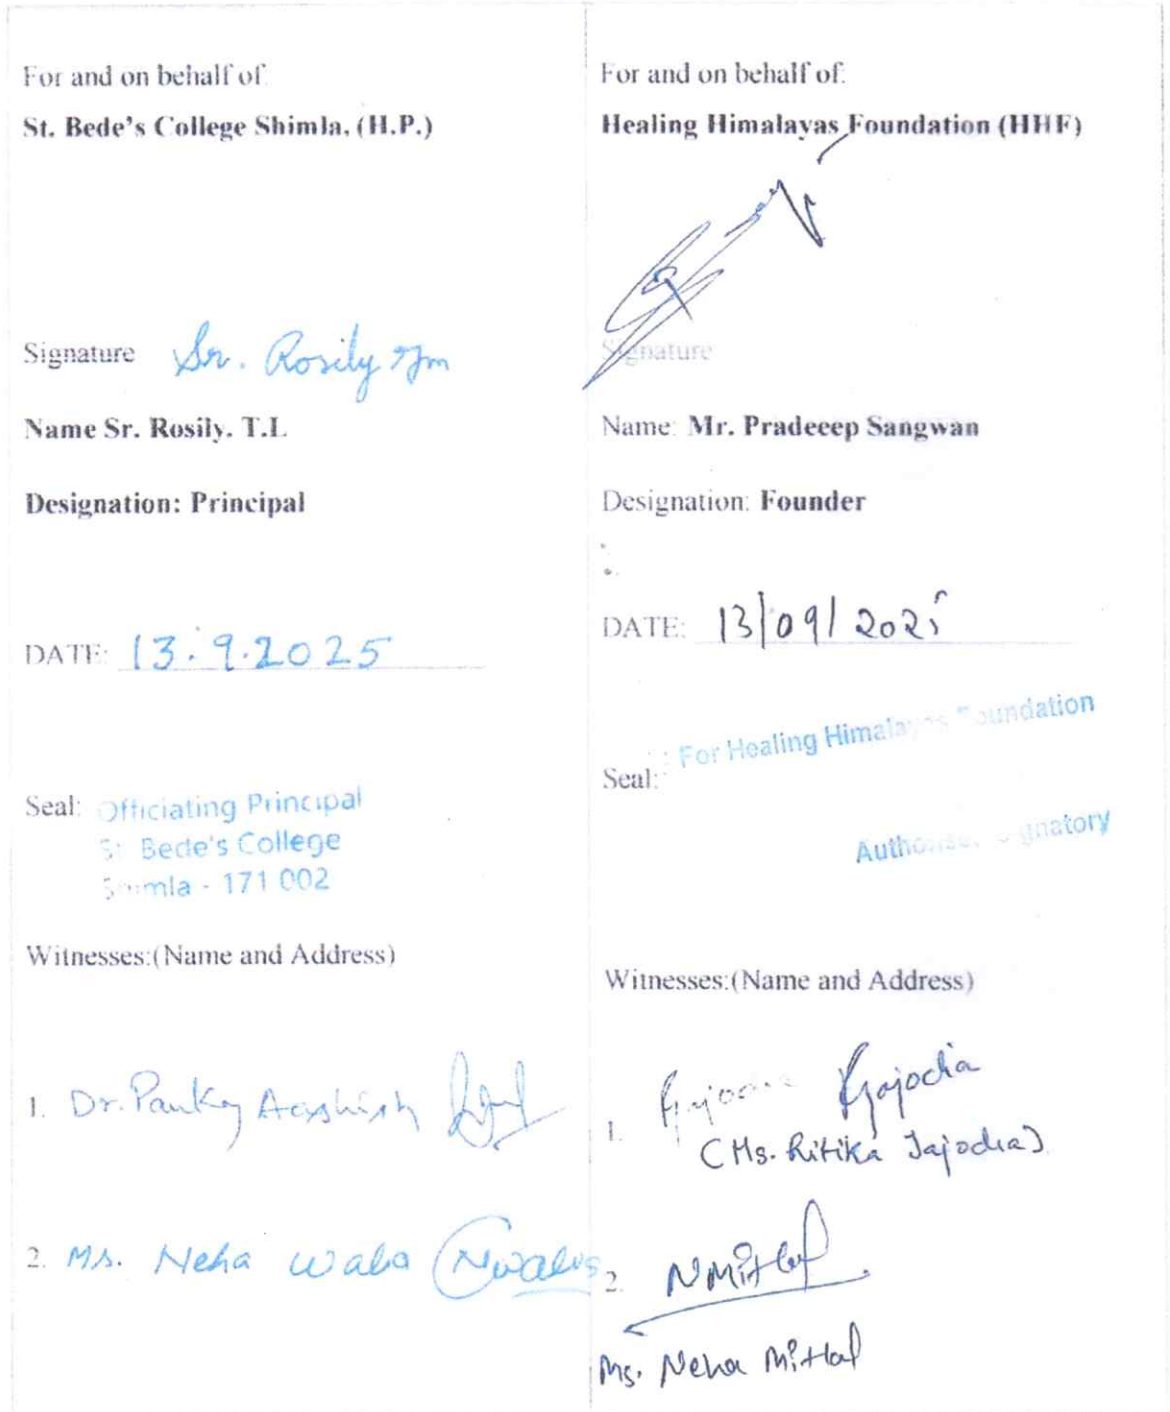 For and on behalf of:
St. Bede's College Shimla, (H.P.)
Signature Sr. Rosily
Name Sr. Rosily. T.L
Designation: Principal
DATE: 13.9.2025
Seal: Officiating Principal
St. Bede's College
Shimla - 171 002
Witnesses:(Name and Address)
1. Dr. Pankaj Aashish
2. Ms. Neha Walia
For and on behalf of:
Healing Himalayas Foundation (HHF)
Signature
Name: Mr. Pradeeep Sangwan
Designation: Founder
DATE: 13/09/2025
Seal: For Healing Himalayas Foundation
Authorised Signatory
Witnesses:(Name and Address)
1. Rjajodia Rjajodia
(Ms. Ritika Jajodia)
2. NMittal
Ms. Neha Mittal